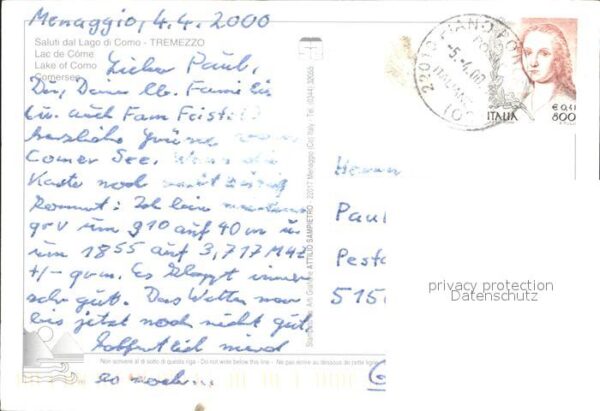 Menaggio, 4.4.2000
Saluti dal Lago di Como - TREMEZZO
Lac de Côme
Lake of Como
Comersee
Lieber Paul,
Dir, Deiner lb. Familie
u. auch Fam
herzliche Grüsse vom
Comer See. Wenn die
Karte noch
kommt: Ich bin
QRV um 910 auf 40 m u.
um 1855 auf 3,717 MHz
+/- qrm. Es klappt immer
sehr gut. Das Wetter war
bis jetzt noch nicht gut,
hoffentlich wird
es noch...
Non scrivere al di sotto di questa riga - Do not write below this line - Ne pas écrire au dessous de cette ligne
ATTILIO SAMPIETRO - 22017 Menaggio (Co) Italy - Tel. (0344)
22010 PIANO POR
-5.4.00
(CO)
ITALIA
€ 0,41
800
Herrn
Paul
Pesta
515
privacy protection
Datenschutz